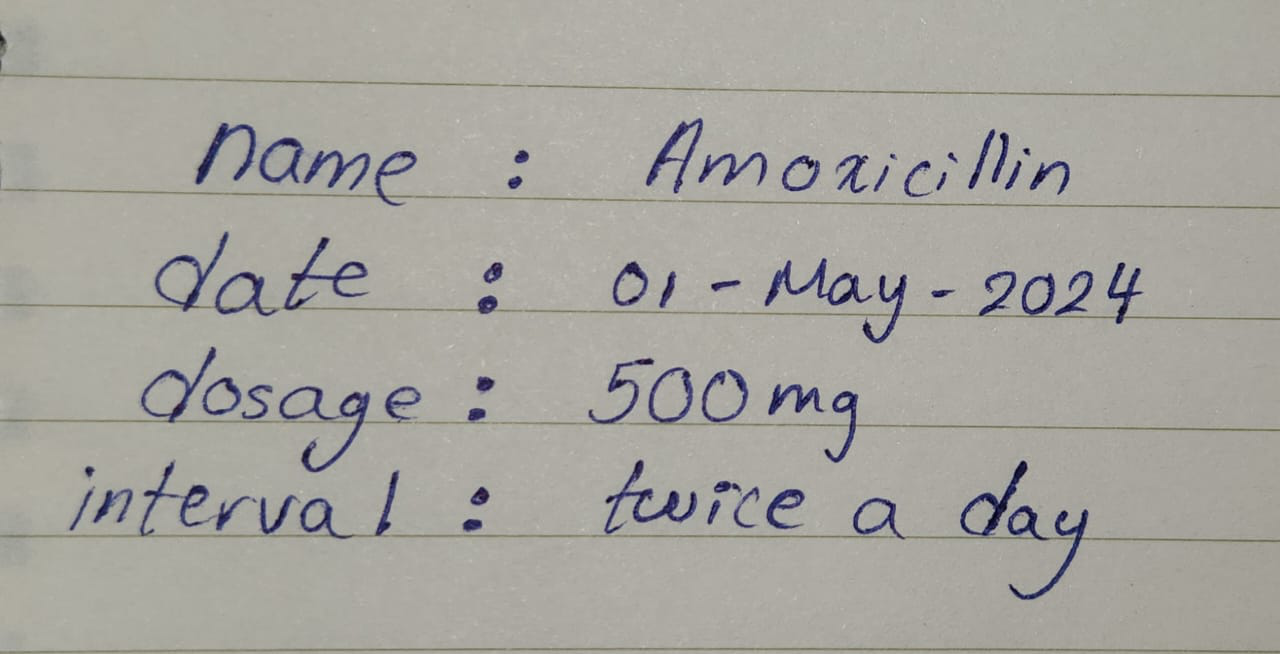 name : Amoxicillin
date : 01-May-2024
dosage : 500mg
interval : twice a day